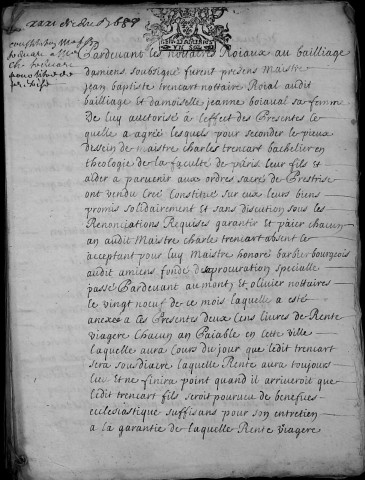 xxxi decembre 1689
constitution
trencart
Pardevant les nottaires Roiaux au bailliage
damiens soubsigné furent presens Maistre
jean baptiste trencart nottaire Roial audit
bailliage et damoiselle jeanne boiaual sa femme
De luy auctorisé a L'effet des Presentes ce
quelle a agreé lesquels pour seconder le pieux
dessein de maistre charles trencart bachelier en
theologie de la faculté de paris leur fils et
aider a parvenir aux ordres sacré de Prestrise
ont vendu Creé Constitué sur eux leurs biens
promis solidairement et sans discution sous les
Renonciations Requises garantir et paier chacun
an audit Maistre charle trencart absent ce
acceptant pour luy Maistre honoré barbier bourgeois
audit amiens fondé de procuration specialle
passé Pardevant aumont et olivier nottaires
le vingt neuf de ce mois laquelle a esté
anexee a ces Presentes deux Cens livres de Rente
viagere Chacun an Paiable en cette ville
laquelle aura Cours du jour que ledit trencart
sera sousdiacre laquelle Rente aura toujours
lieu et ne finira point quand il arriveroit que
ledit trencart fils seroit pourveu de benefices
ecclesiastique suffisans pour son entretien
a la garantie de laquelle Rente viagere